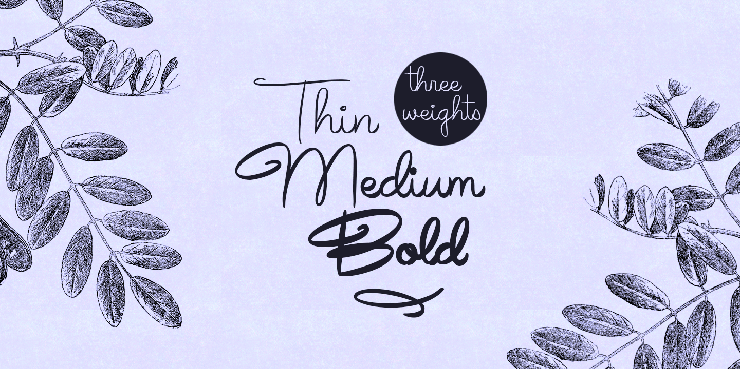 three
weights
Thin
Medium
Bold